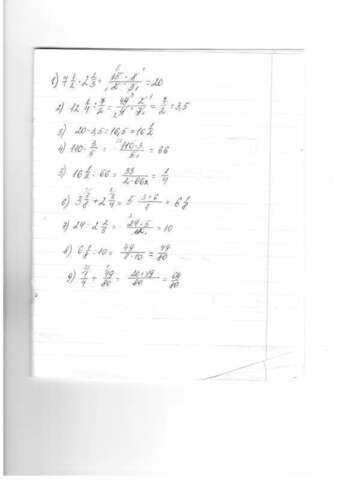 1) 7 1/2 · 2 2/3 = 15·8/2·3 = 20
2) 12 1/4 : 7/2 = 49·2/4·7 = 7/2 = 3,5
3) 20 - 3,5 = 16,5 = 16 1/2
4) 110 · 3/5 = 110·3/5 = 66
5) 16 1/2 : 66 = 33/2·66 = 1/4
6) 3 3/8 + 2 3/4 = 5 3+6/8 = 6 1/8
7) 24 : 2 2/5 = 24·5/12 = 10
8) 6 1/8 : 10 = 49/8·10 = 49/80
9) 1/4 + 49/80 = 20+49/80 = 69/80